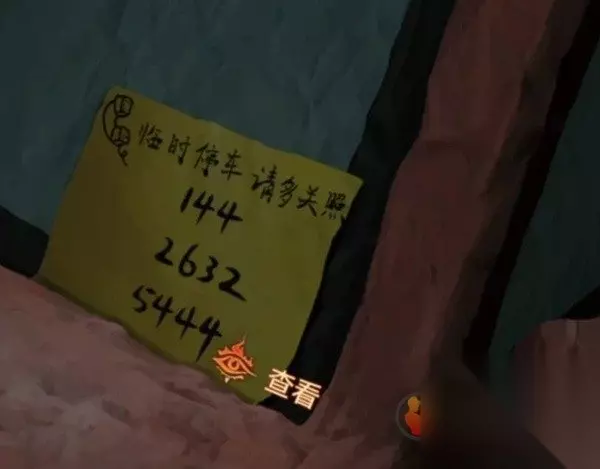 临时停车 请多关照
144
2632
5444
查看